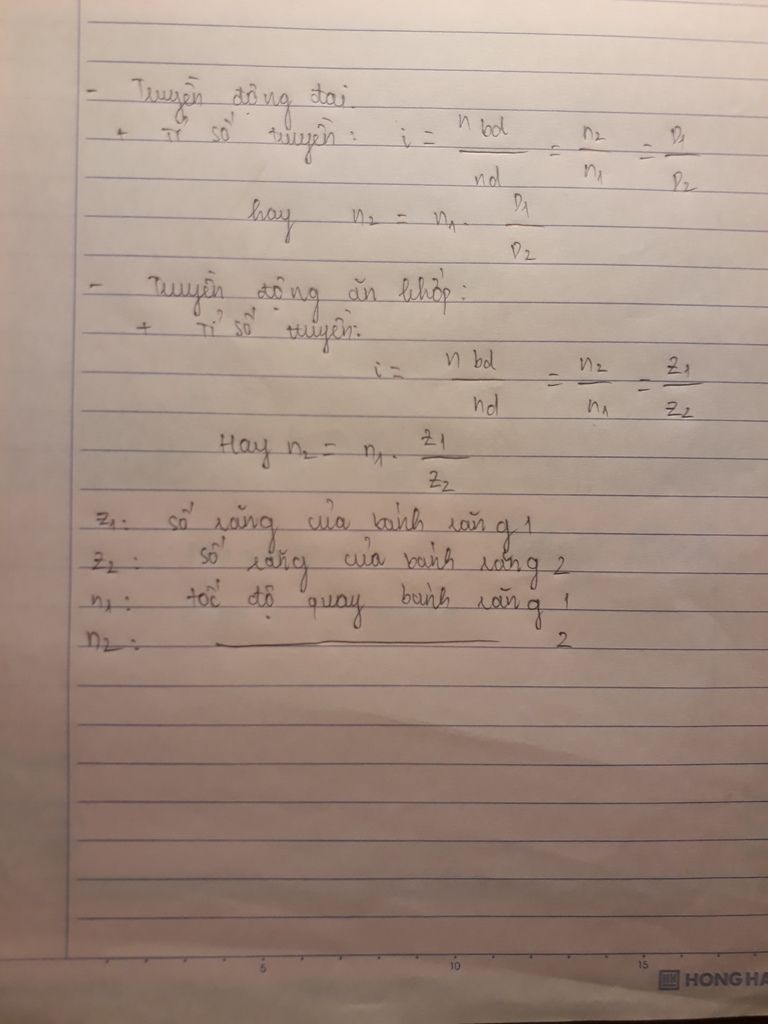 - Truyền động đai.
+ Tỉ số truyền: i = n bd / nd = n2 / n1 = D1 / D2
hay n2 = n1 . D1 / D2
- Truyền động ăn khớp:
+ Tỉ số truyền:
i = n bd / nd = n2 / n1 = Z1 / Z2
Hay n2 = n1 . Z1 / Z2
Z1: số răng của bánh răng 1
Z2: số răng của bánh răng 2
n1: tốc độ quay bánh răng 1
n2: ———— 2
5 10 15
HONG HA